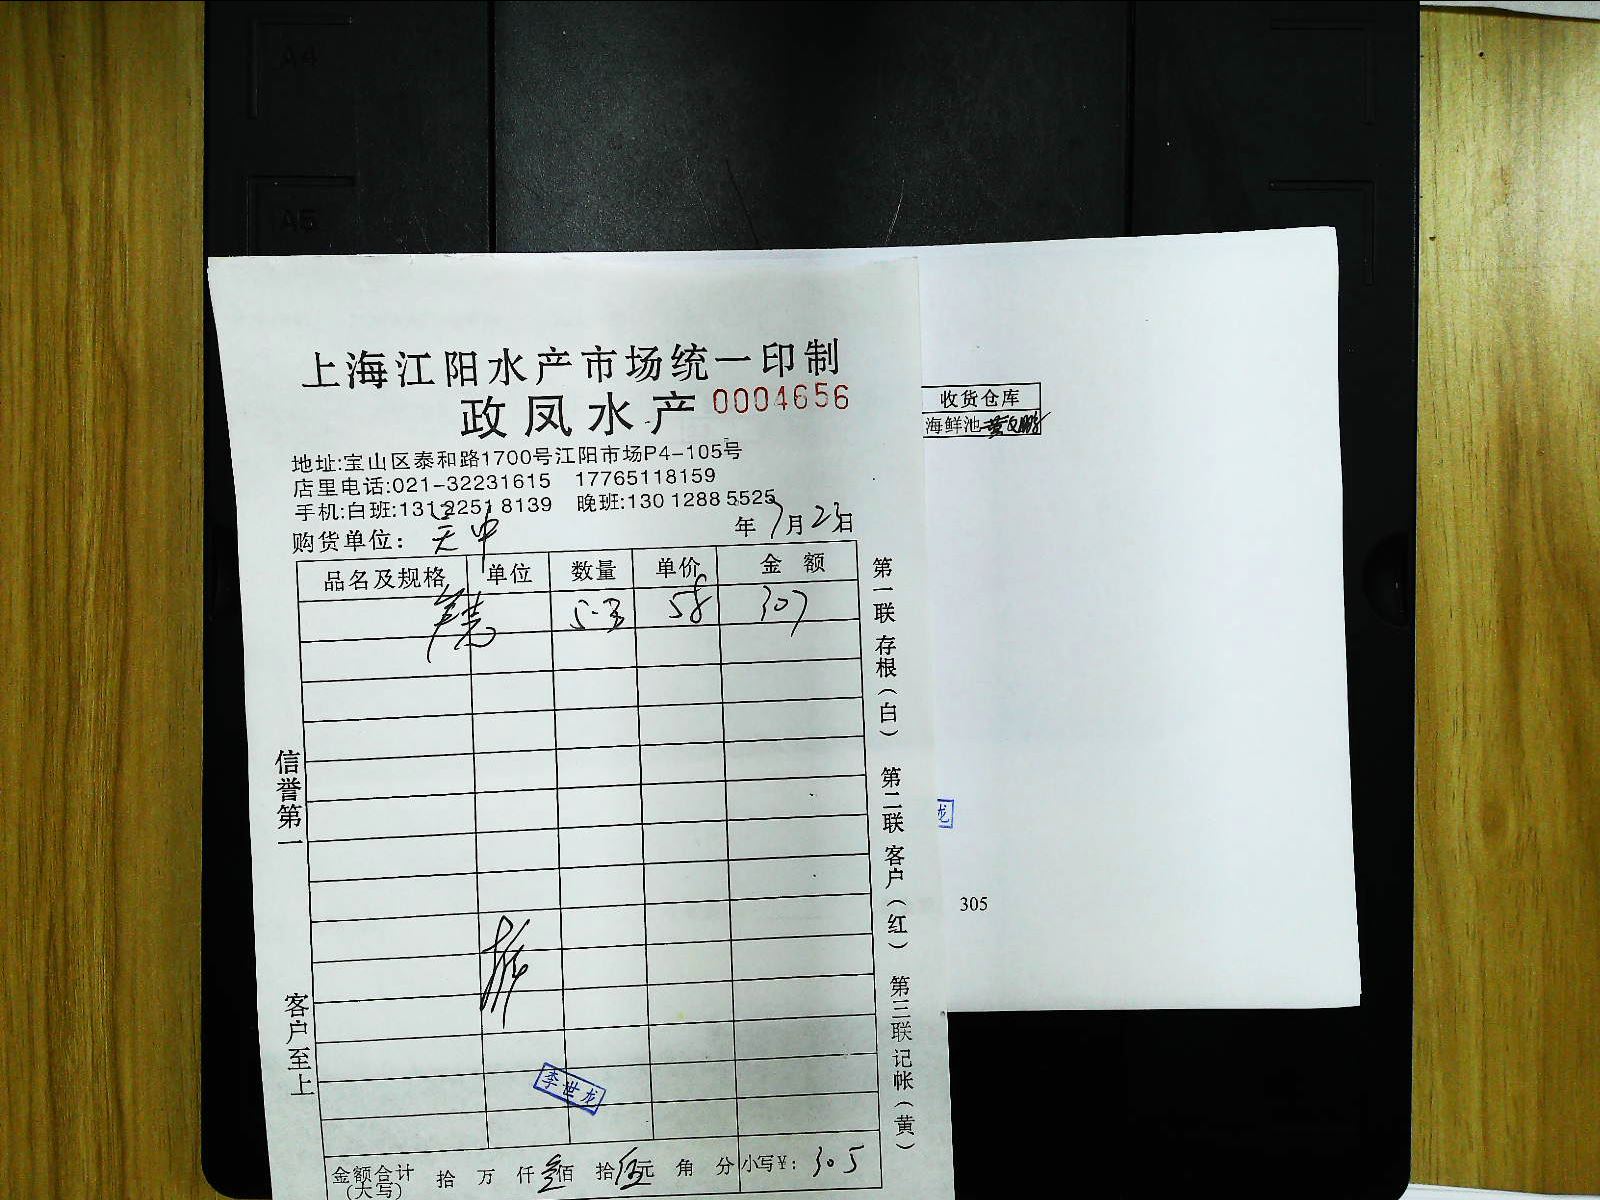 A4
A5
上海江阳水产市场统一印制
政凤水产 0004656
地址:宝山区泰和路1700号江阳市场P4-105号
店里电话:021-32231615 17765118159
手机:白班:131 2251 8139 晚班:130 1288 5525
购货单位: 年7月23日
品名及规格 单位 数量 单价 金 额
58 307
第一联 存根(白) 第二联 客户(红) 第三联 记帐(黄)
信誉第一
客户至上
李世龙
金额合计(大写) 拾 万 仟 叁佰 拾 伍元 角 分 小写¥: 305
收货仓库
海鲜池
龙
305